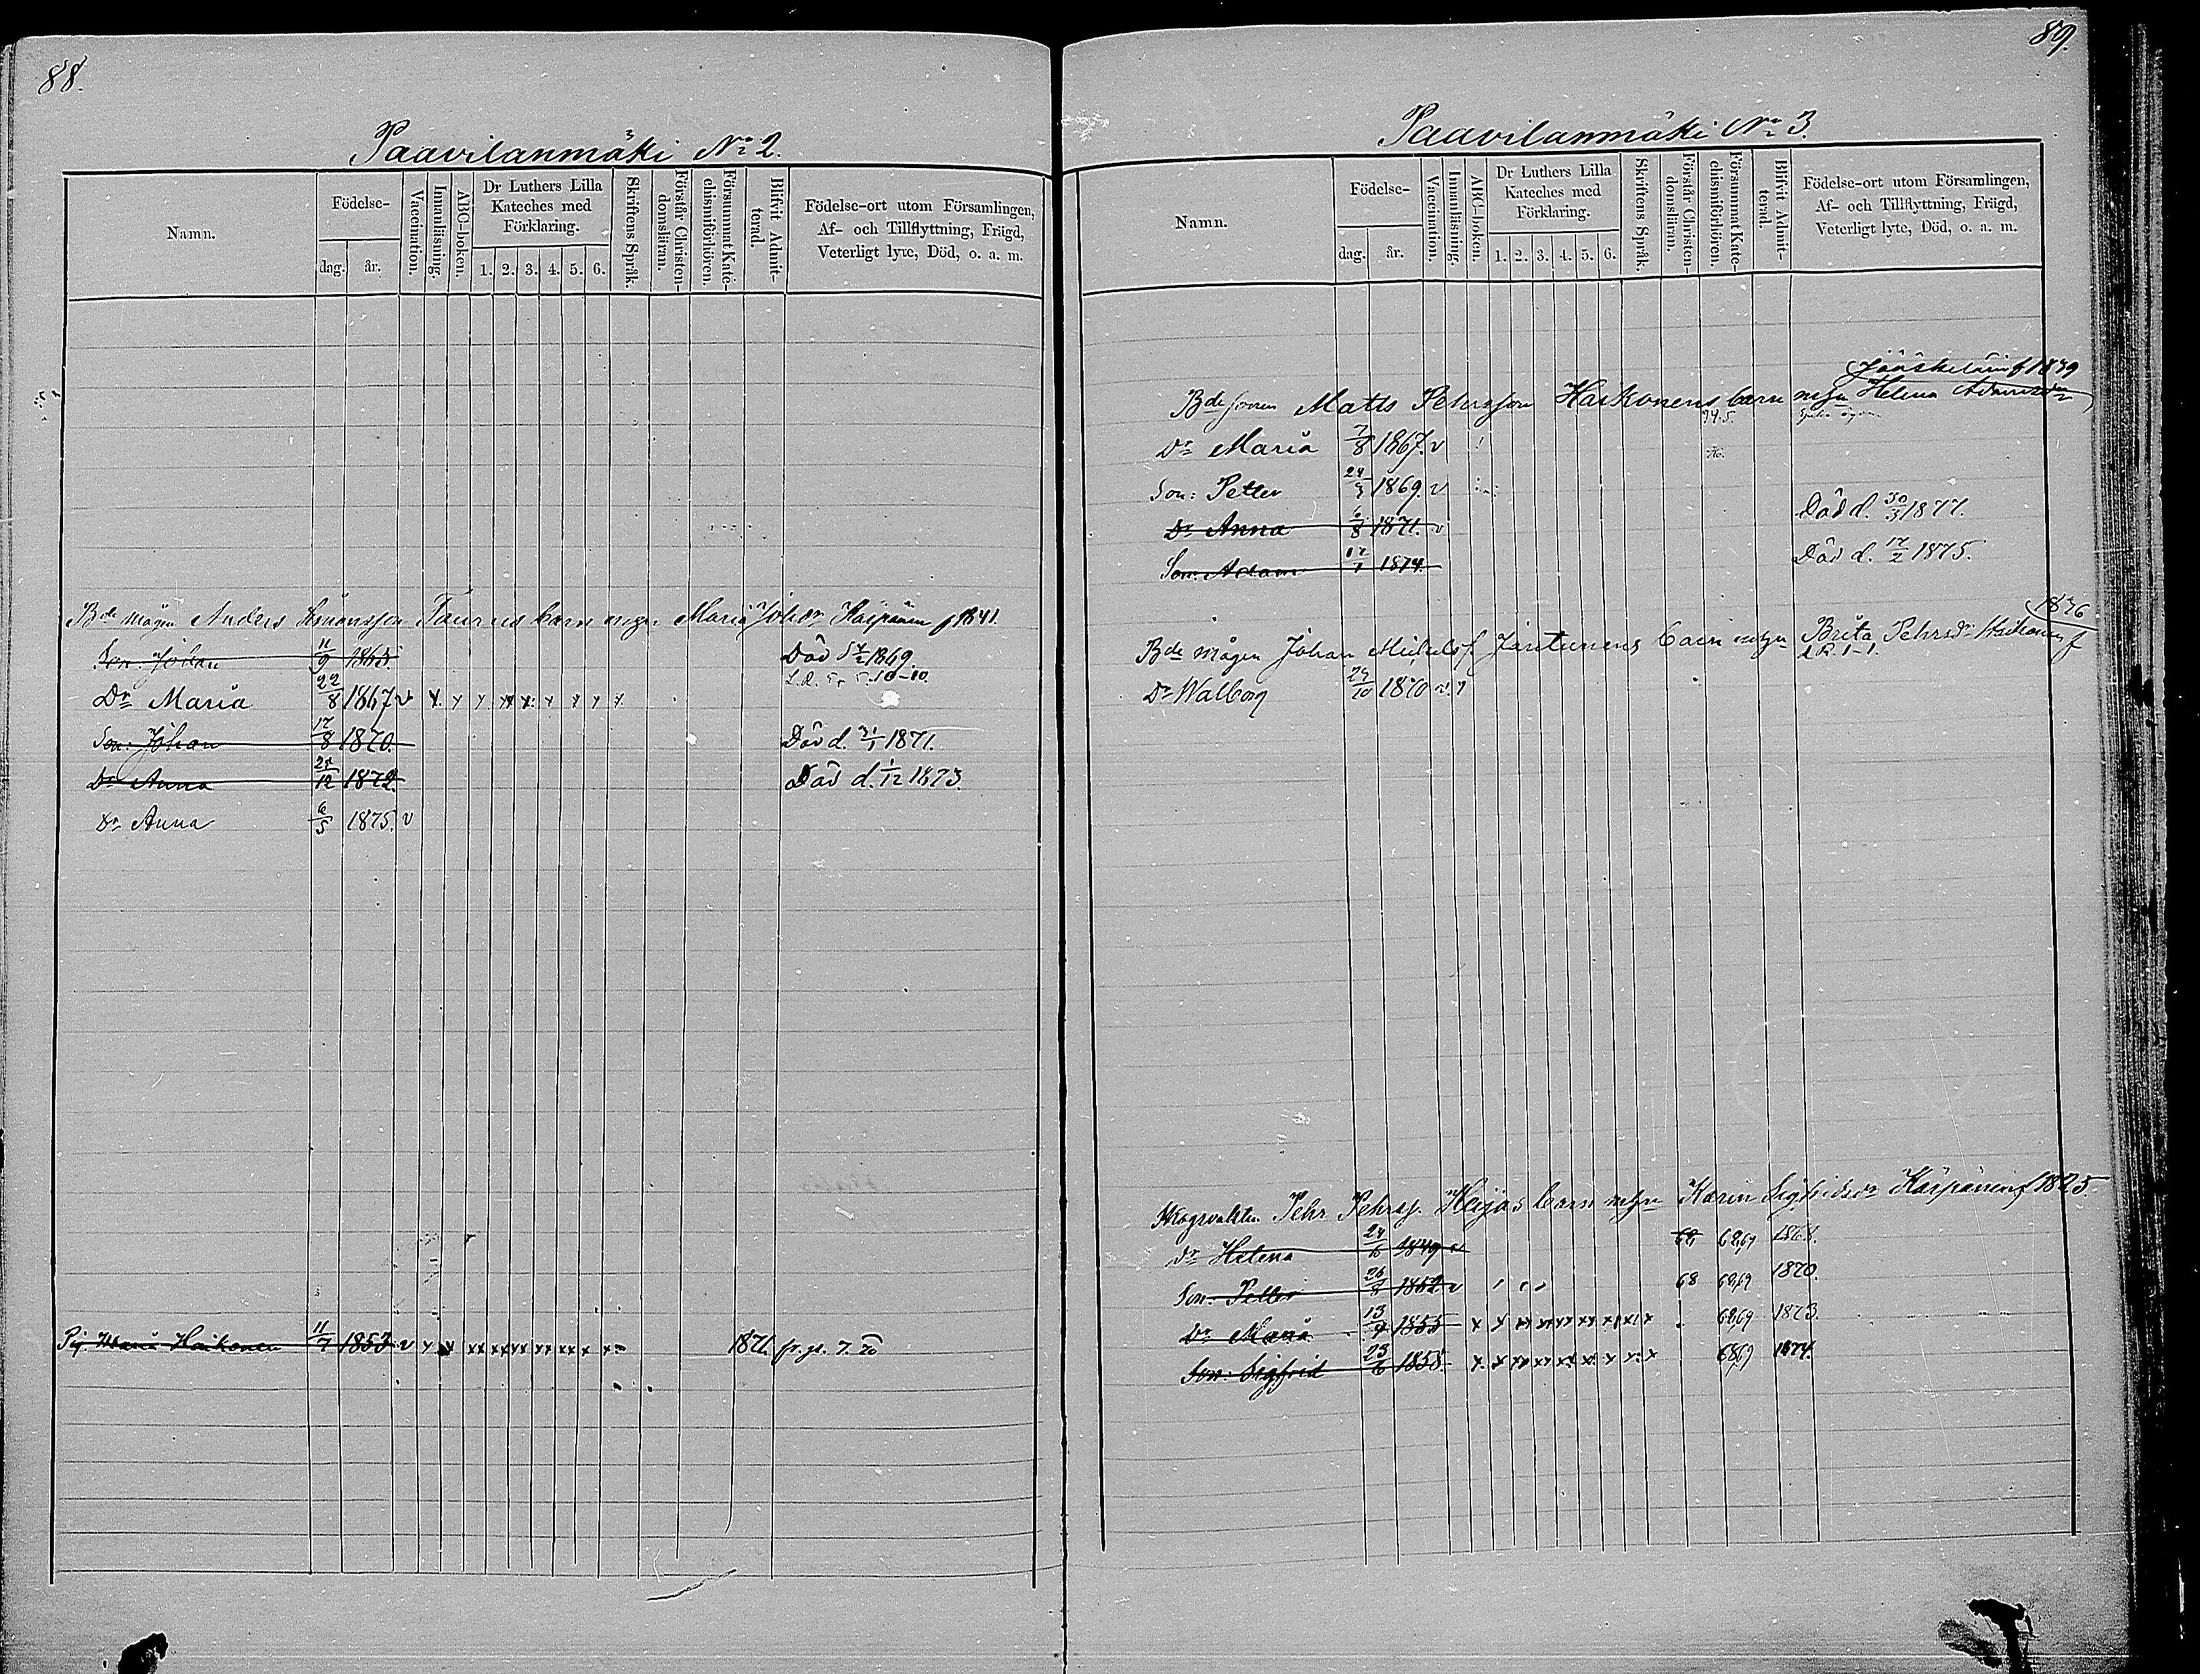 88.
Paavilanmäki No 2.
Namn.
Födelse-
dag. år.
Vaccination.
Innanläsning.
ABC-boken.
Dr Luthers Lilla Kateches med Förklaring.
1. 2. 3. 4. 5. 6.
Skriftens Språk.
Förstår Christendomsläran.
Försummat Katechismiförhören.
Blifvit Admitterad.
Födelse-ort utom Församlingen,
Af- och Tillflyttning, Frägd,
Veterligt lyte, Död, o. a. m.
Bde mågen Anders Taurus barn Maria Johsdr Karpänen f 1841.
Son: Johan 11/9 1865 Död d 1869.
Dr Maria 22/8 1867 v x
Son: Johan 17/8 1870 Död d. 31/1 1871.
Dr Anna 25/12 1872. Död d. 1/12 1873.
Dr Anna 6/5 1875. v
Pig. Maria Haikonen 11/7 1853 v x x xx xx xx xx xx x x 1871 fr. p. 7. 70
89.
Paavilanmäki No 3.
Namn.
Födelse-
dag. år.
Vaccination.
Innanläsning.
ABC-boken.
Dr Luthers Lilla
Kateches med
Förklaring.
1. 2. 3. 4. 5. 6.
Skriftens Språk.
Förstår Christendomsläran.
Försummat Katechismiförhören.
Blifvit Admitterad.
Födelse-ort utom Församlingen,
Af- och Tillflyttning, Frägd,
Veterligt lyte, Död, o. a. m.
Jääskeläin f 1839
Bde sonen Matts Pehrsson Haikonens barn m hu Helena Adamsdr
74.5.
Dr Maria 7/8 1867. v 76.
Son: Petter 24/3 1869. v
Dr Anna 6/8 1871. v Död d. 30/3 1877.
Son: Adam 17/1 1874. Död d. 17/2 1875.
1846
Bde mågen Johan Michelsf. Jantunens barn Brita Pehrsdr Haikonen f
Dr Walborg 29/10 1870 v
Skogsvakten Pehr Pehrss. Heijas barn Karin Sigfridsdr Karpänen f 1825
Dr Helena 24/6 1849 v 68 68,69 1868.
Son: Petter 26/8 1852 v 68 68,69 1870.
Dr Maria 13/9 1855 x x xx xx xx xx xx x x 68,69 1873.
Son: Sigfrid 23/6 1858. x. x xx xx xx xx x x x 68,69 1874.